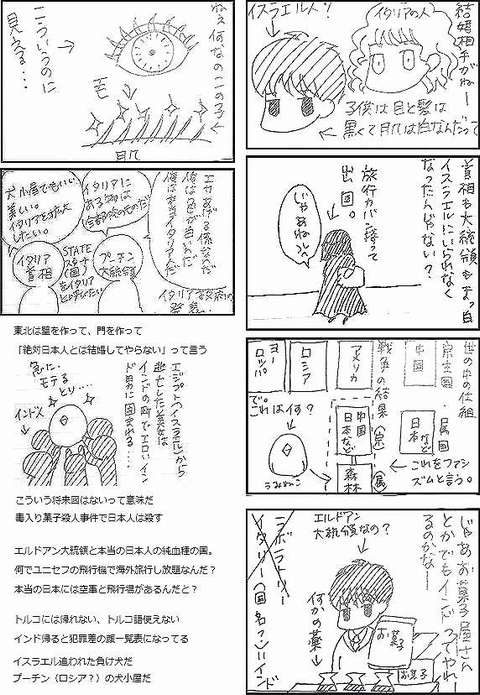 結婚相手がねー
イタリアの人
イスラエル人？
子供は目と髪は
黒くて肌は白なんだって
首相も大統領もまっ白
イスラエルにいられなく
なったんじゃない？
旅行カバン持って
出国。
じゃあねぃ〜
世の中の仕組
宗主国 属国
中国
日本など
戦争の結果
アメリカ
ロシア
ヨーロッパ
（宗）
（属）
中国
日本など
森林
で。
これは何？
うみねこ
これをファシ
ズムと言う。
じゃあお菓子屋さん
とかでもインドってやれ
るのかなー
エルドアン
大統領なの？
何かの薬
お菓子
お菓子
インド
ねぇ何なのこの子
こういうのに
見える…
毛
肌
エサあげる係なんだ
俺は本当イタリア人だ
イタリアに
ある物は
全部俺のものだ
犬小屋でもいい
美しい。
イタリア
首相
STATE
(国)
プーチン
大統領
東北は壁を作って、門を作って
「絶対日本人とは結婚してやらない」って言う
急に、
モテる
とり…。
インド人
エジプト（イスラエル）から
逃亡した美女は
インドの町でエロいイン
ド男に囲まれる…
こういう将来図はないって意味だ
毒入り菓子殺人事件で日本人は殺す
エルドアン大統領と本当の日本人の純血種の国。
何でユニセフの飛行機で海外旅行し放題なんだ？
本当の日本には空軍と飛行場があるんだと？
トルコには帰れない、トルコ語使えない
インド帰ると犯罪差の顔一覧表になってる
イスラエル追われた負け犬だ
プーチン（ロシア？）の犬小屋だ